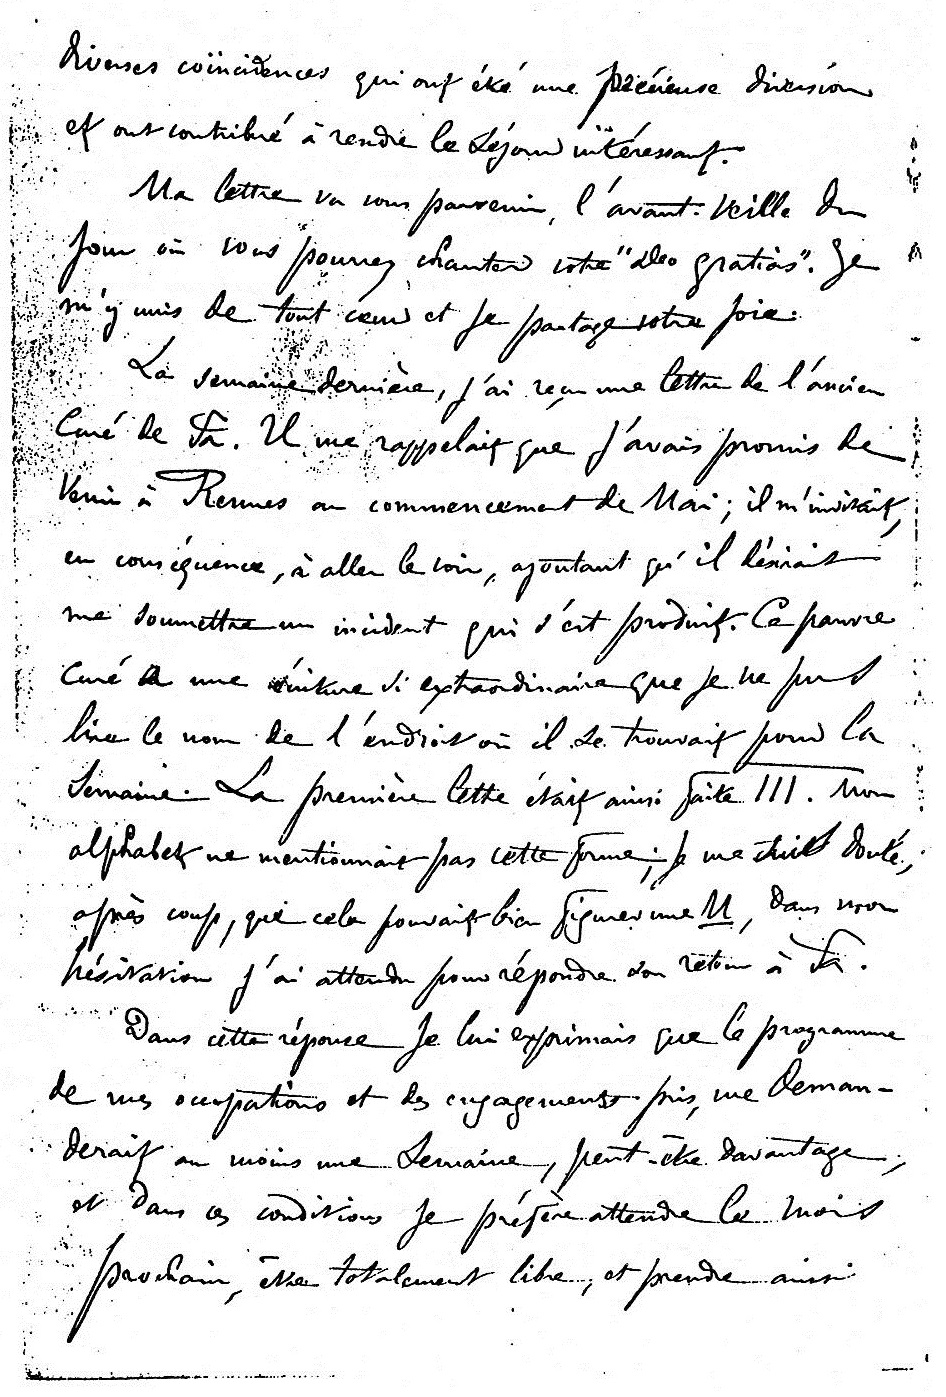 diverses coïncidences qui ont été une précieuse diversion
et ont contribué à rendre le séjour intéressant.
Ma lettre va vous parvenir, l'avant-veille du
jour où vous pourrez chanter votre "Deo gratias". Je
m'y unis de tout cœur et je partage votre joie.
La semaine dernière, j'ai reçu une lettre de l'ancien
Curé de Tx. Il me rappelait que j'avais promis de
venir à Rennes au commencement de Mai ; il m'invitait,
en conséquence, à aller le voir, ajoutant qu'il désirait
me soumettre un incident qui s'est produit. Ce pauvre
curé a une écriture si extraordinaire que je ne pus
lire le nom de l'endroit où il se trouvait pour la
semaine. La première lettre était ainsi faite III. Mon
alphabet ne mentionnait pas cette forme ; je me suis douté,
après coup, que cela pouvait bien figurer une M, dans mon
hésitation j'ai attendu pour répondre son retour à Tx.
Dans cette réponse je lui exprimais que le programme
de mes occupations et des engagements pris, me deman-
derait au moins une semaine, peut-être davantage,
et dans ces conditions je préfère attendre le mois
prochain, être totalement libre, et prendre ainsi